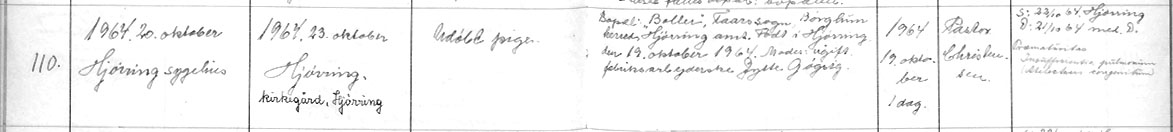 110.
1964. 20. oktober
Hjörring sygehus
1964. 23. oktober
Hjörring.
kirkegård, Hjörring
Udöbt pige.
Bopæl: "Bolleri", Taars sogn, Borglum
herred, Hjörring amt. Födt i Hjörring
den 19. oktober 1964. Moder: ugift
fabriksarbejderske Jytte
1964
19. okto-
ber
1 dag.
Pastor
Christen-
sen.
S: 22/10 64. Hjörring
D: 21/10 64 med. D.
Praematuritas
insufficientia pulmonum